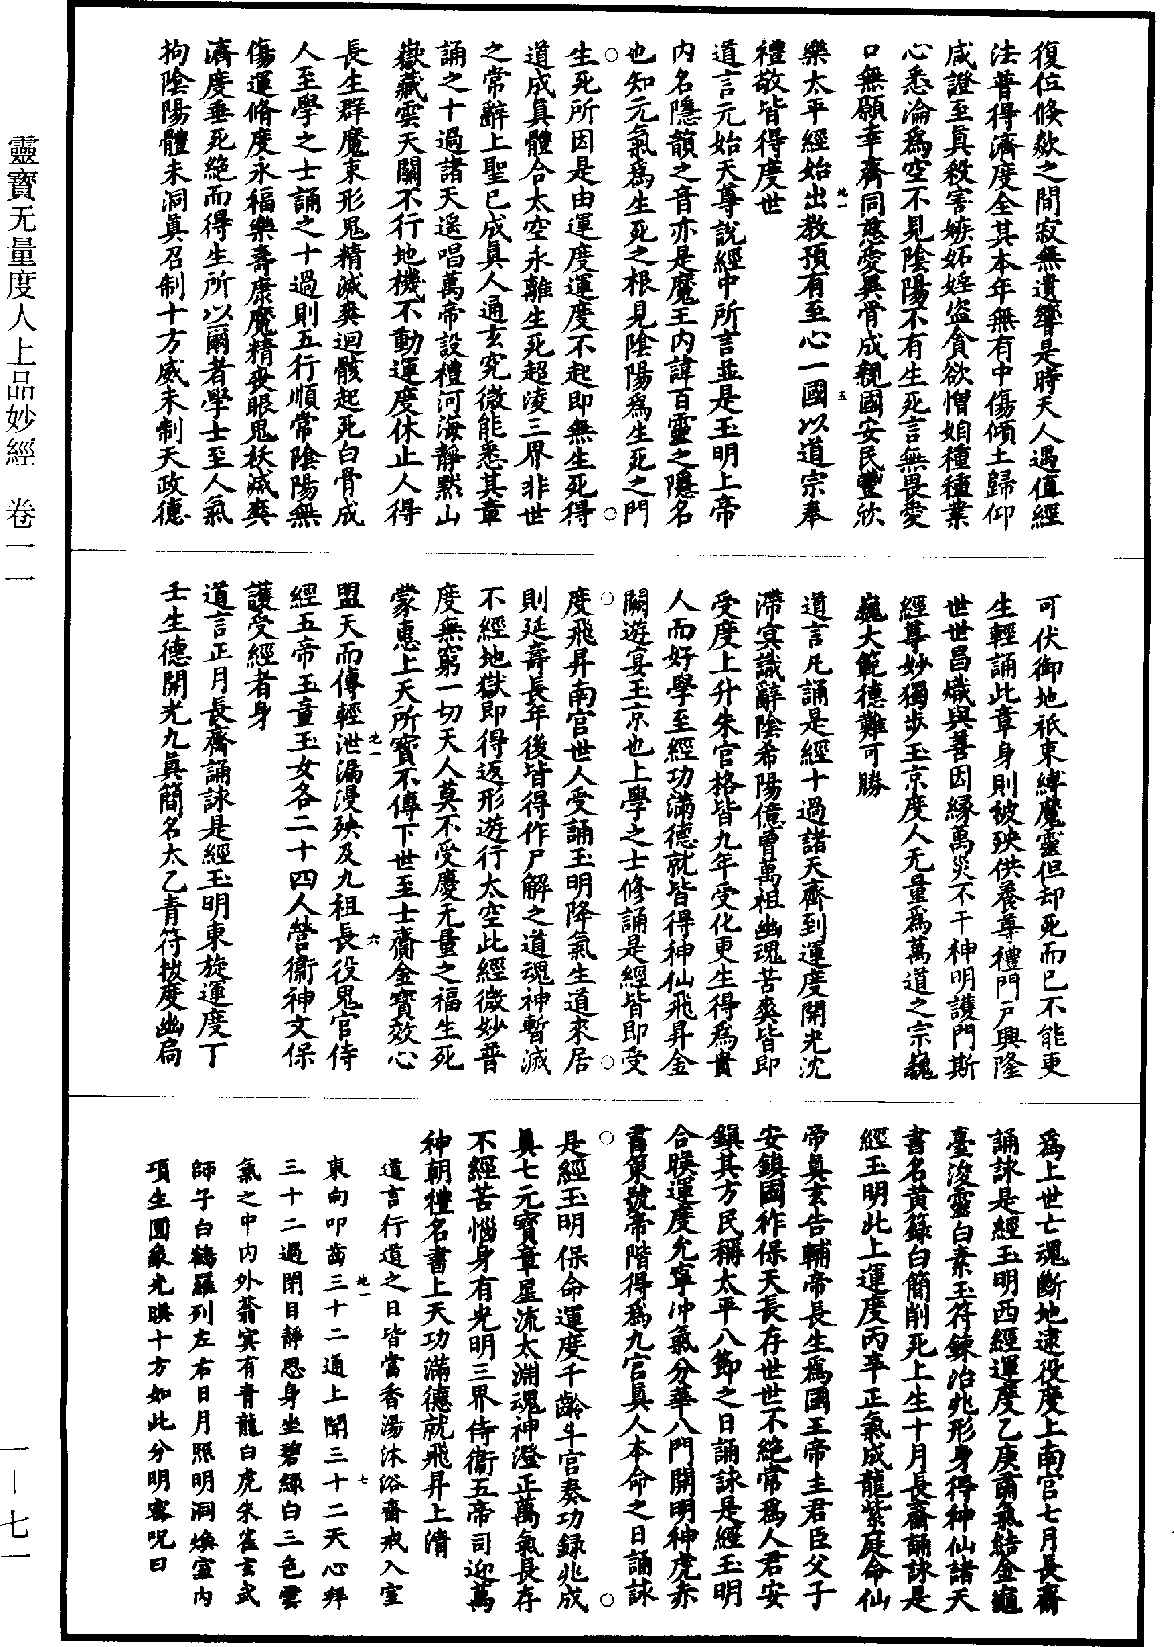 復位倏欻之間寂無遺響是時天人遇值經
法普得濟度全其本年無有中傷傾土歸仰
咸證至真殺害嫉妬婬盜貪欲憎姐種種業
心悉淪爲空不見陰陽不有生死言無畏愛
口無願幸齊同慈愛異骨成親國安民豐欣
樂太平經始出教預有至心一國以道宗奉
禮敬皆得度世
道言元始天尊說經中所言並是玉明上帝
內名隱韻之音亦是魔王內諱百靈之隱名
也知元氣爲生死之根見陰陽爲生死之門
生死所因是由運度運度不起即無生死得
道成真體合太空永離生死超凌三界非世
之常辭上聖已成真人通玄究微能悉其章
誦之十過諸天遙唱萬帝設禮河海靜默山
嶽藏雲天關不行地機不動運度休止人得
長生群魔束形鬼精滅爽迴骸起死白骨成
人至學之士誦之十過則五行順常陰陽無
傷運脩度永福樂壽康魔精喪眼鬼妖滅爽
濟度垂死絕而得生所以爾者學士至人氣
拘陰陽體未洞真召制十方威未制天政德
可伏御地祇束縛魔靈但却死而已不能更
生輕誦此章身則被殃供養尊禮門戶興隆
世世昌熾與善因緣萬災不干神明護門斯
經尊妙獨步玉京度人无量爲萬道之宗巍
巍大範德難可勝
道言凡誦是經十過諸天齊到運度開光沈
滯冥識辭陰希陽億曾萬祖幽魂苦爽皆即
受度上升朱宮格皆九年受化更生得爲貴
人而好學至經功滿德就皆得神仙飛昇金
闕遊宴玉京也上學之士修誦是經皆即受
度飛昇南宮世人受誦玉明降氣生道來居
則延壽長年後皆得作尸解之道魂神暫滅
不經地獄即得返形遊行太空此經微妙普
度無窮一切天人莫不受慶无量之福生死
蒙惠上天所寶不傳下世至士齎金寶效心
盟天而傳輕泄漏漫殃及九祖長役鬼官侍
經五帝玉童玉女各二十四人營衞神文保
護受經者身
道言正月長齋誦詠是經玉明東旋運度丁
壬生德開光九真簡名太乙青符拔度幽扃
爲上世亡魂斷地逮役度上南宮七月長齋
誦詠是經玉明西經運度乙庚肅氣結金
臺浚靈白素玉符鍊冶兆形身得神仙諸天
書名黃籙白簡削死上生十月長齋誦詠是
經玉明北上運度丙辛正氣成龍紫庭命仙
帝真玄告輔帝長生爲國王帝主君臣父子
安鎮國祚保天長存世世不絕常爲人君安
鎮其方民稱太平八節之日誦詠是經玉明
合暎運度允寧沖氣分華八門開明神虎赤
書策號帝階得爲九宮真人本命之日誦詠
是經玉明保命運度千齡斗官奏功錄兆成
真七元寶章星流太淵魂神澄正萬氣長存
不經苦惱身有光明三界侍衞五帝司迎萬
神朝禮名書上天功滿德就飛昇上清
道言行道之日皆當香湯沐浴齋戒入室
東向叩齒三十二通上聞三十二天心拜
三十二過閉目靜思身坐碧綠白三色雲
氣之中內外蓊冥有青龍白虎朱雀玄武
師子白鶴羅列左右日月照明洞煥室內
項生圓象光暎十方如此分明密呪曰
靈寶无量度人上品妙經 卷一一
一—七一